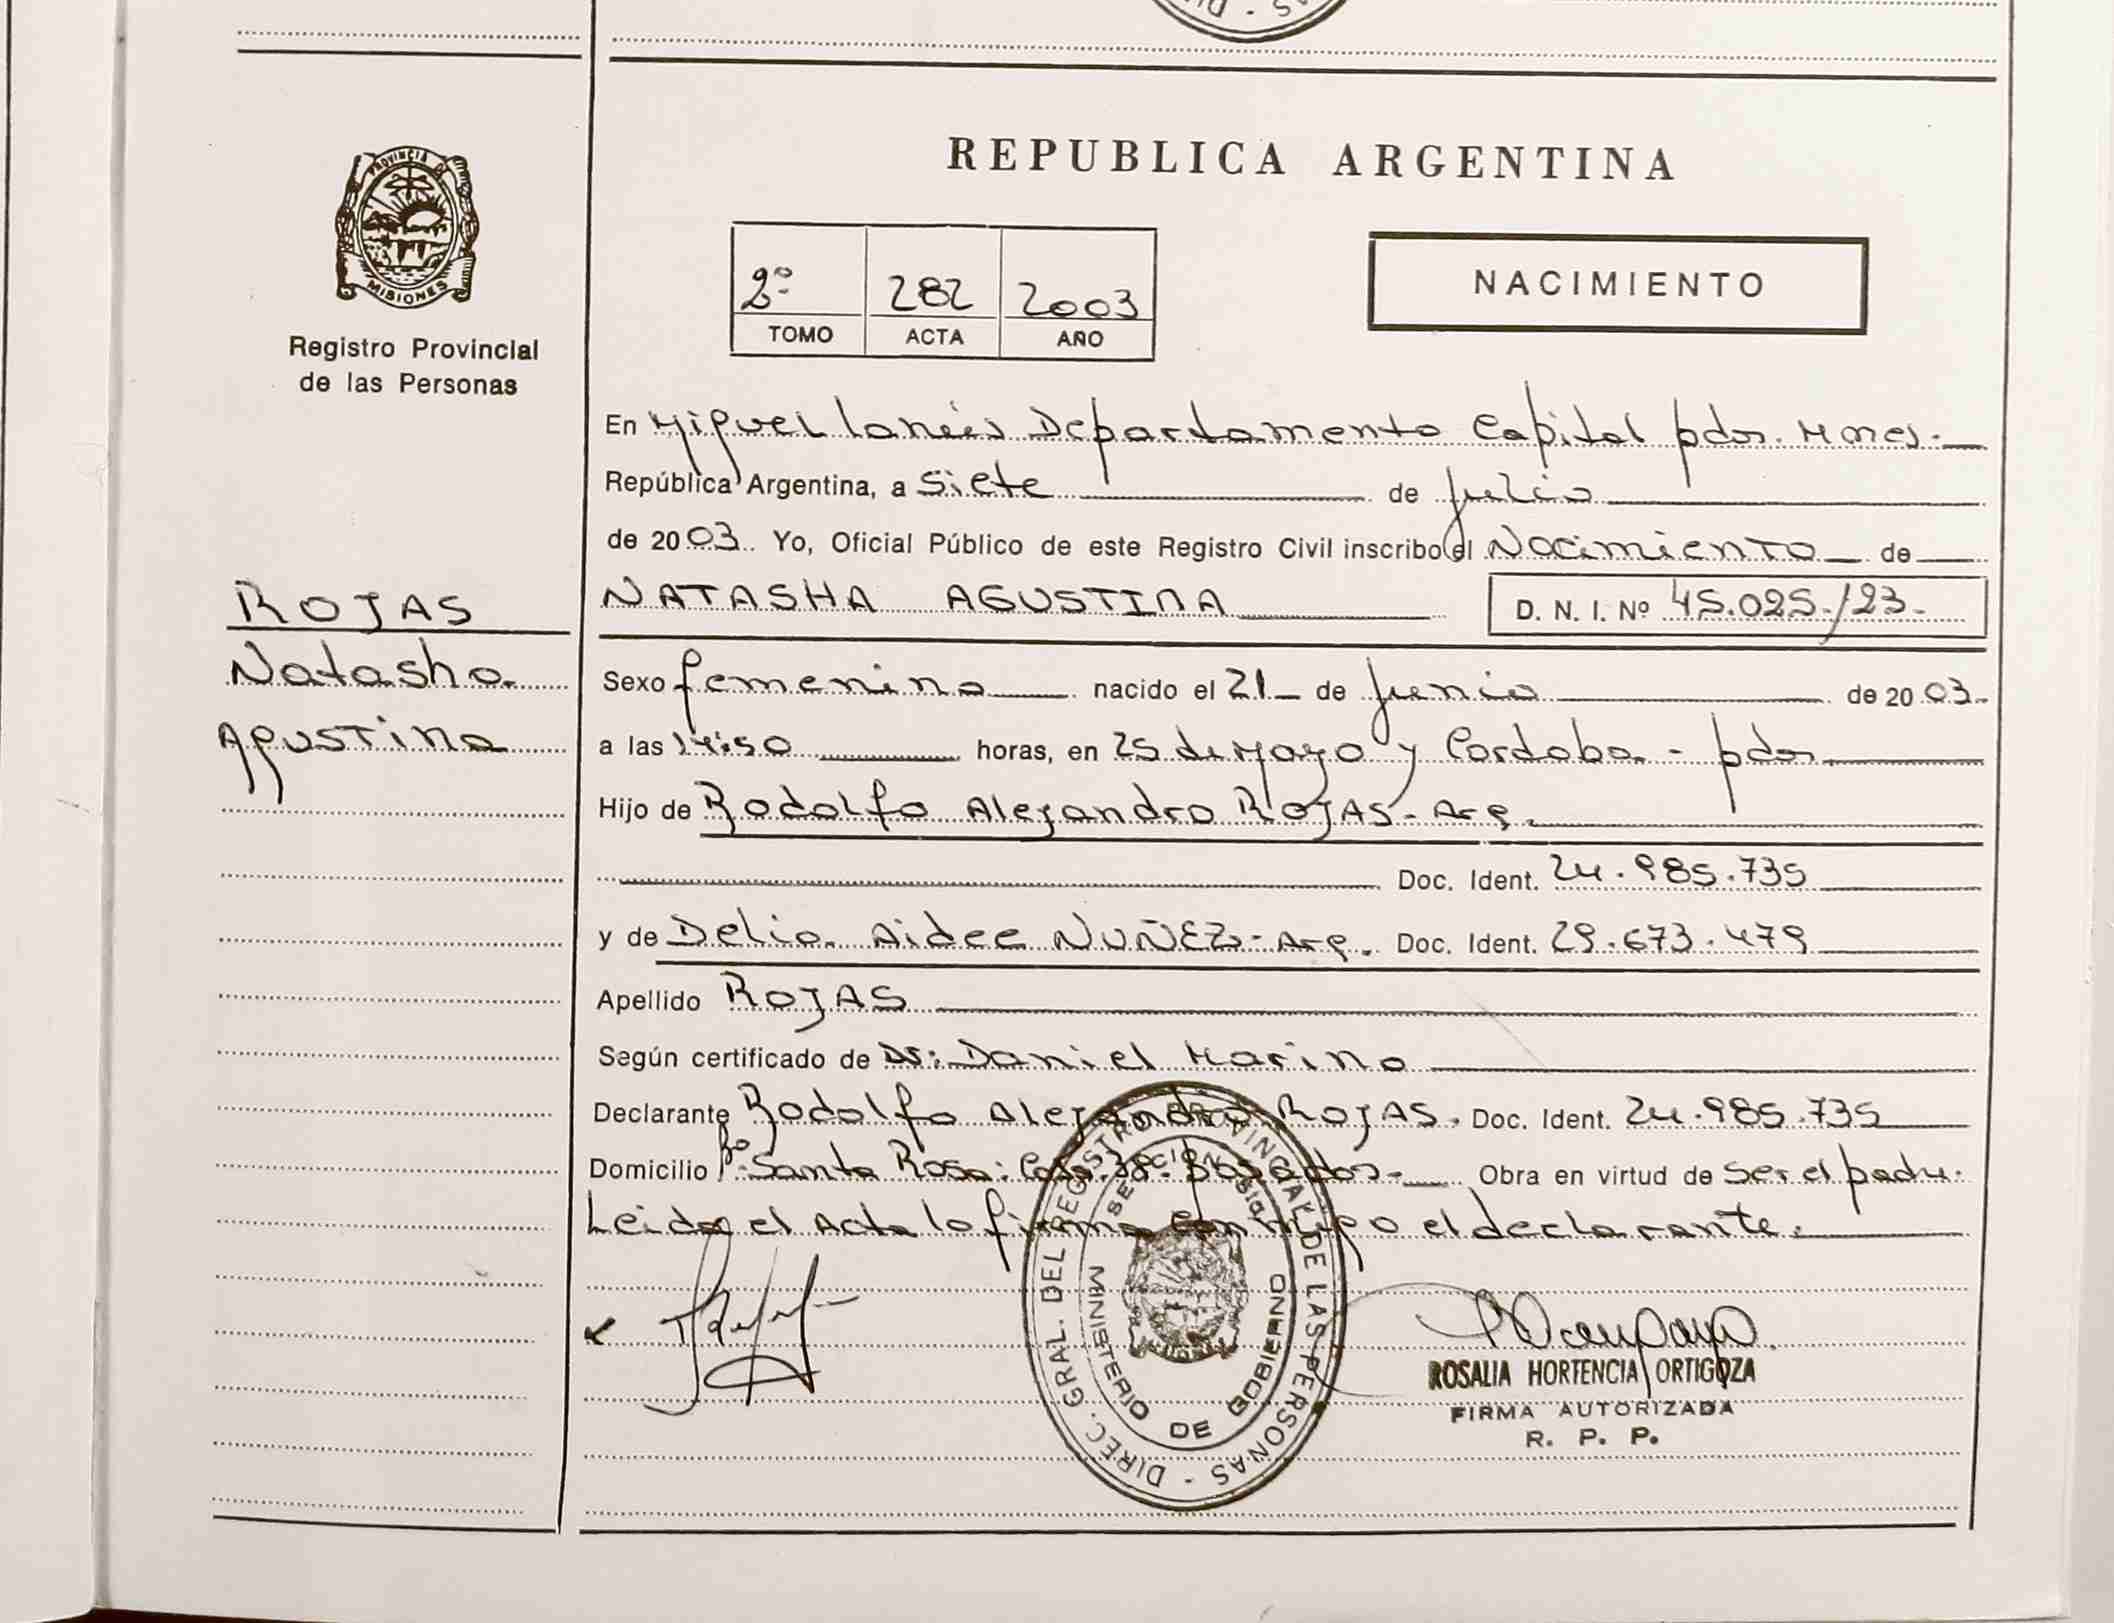 PROVINCIA DE
MISIONES
Registro Provincial
de las Personas
ROJAS
Natasha
Agustina
REPUBLICA ARGENTINA
2º 282 2003
TOMO ACTA AÑO
NACIMIENTO
En Miguel Lanús Departamento Capital pdas. Mnes.
República Argentina, a Siete de julio
de 2003. Yo, Oficial Público de este Registro Civil inscribo el Nacimiento de
NATASHA AGUSTINA D. N. I. Nº 45.025.123.
Sexo femenino nacido el 21 de junio de 2003.
a las 14:50 horas, en 25 de Mayo y Cordoba - pdas
Hijo de Rodolfo Alejandro ROJAS - Arg.
Doc. Ident. 24.985.735
y de Delia Aidee NUÑEZ - Arg. Doc. Ident. 29.673.479
Apellido ROJAS
Según certificado de Dr. Daniel Marino
Declarante Rodolfo Alejandro ROJAS. Doc. Ident. 24.985.735
Domicilio Bº Santa Rosa: Casa: 38. Posadas - Obra en virtud de Ser el padre.
Leida el Acta la firma conmigo el declarante.
DIREC. GRAL. DEL REGISTRO PROVINCIAL DE LAS PERSONAS
MINISTERIO DE GOBIERNO
ROSALIA HORTENCIA ORTIGOZA
FIRMA AUTORIZADA
R. P. P.